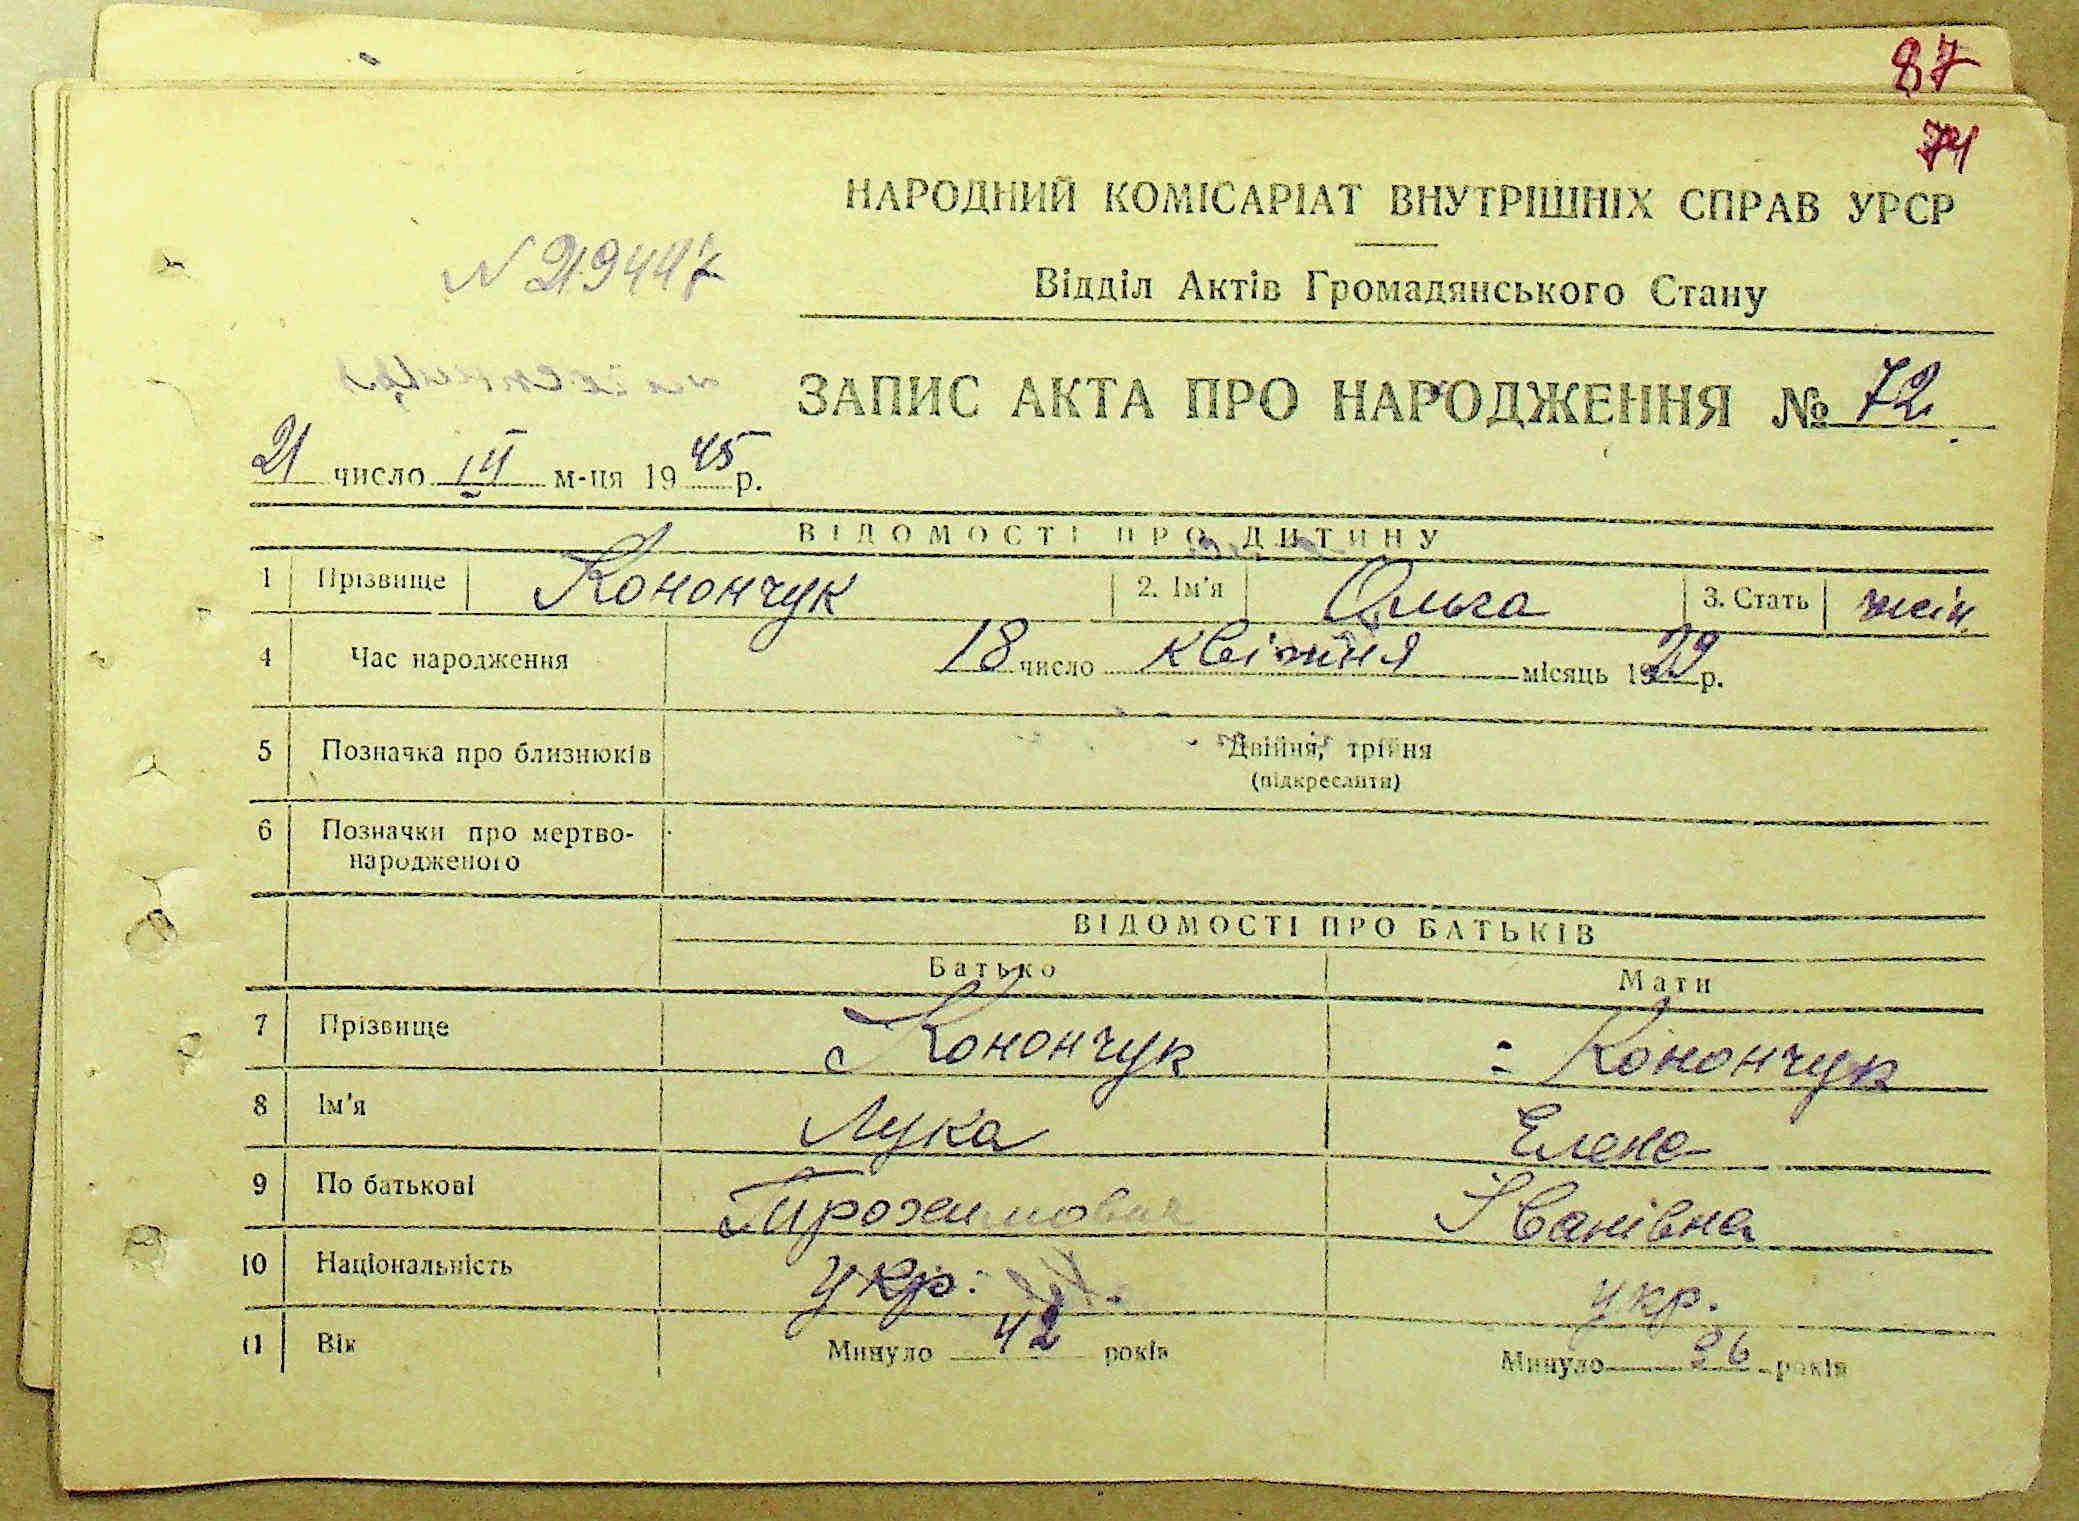 87
74
НАРОДНИЙ КОМІСАРІАТ ВНУТРІШНІХ СПРАВ УРСР
N 219447
Відділ Актів Громадянського Стану
ЗАПИС АКТА ПРО НАРОДЖЕННЯ № 72
21 число III м-ця 1945 р.
ВІДОМОСТІ ПРО ДИТИНУ
1 Прізвище Конончук 2. Ім'я Ольга 3. Стать жін.
4 Час народження 18 число квітня місяць 1929 р.
5 Позначка про близнюків Двійня, трійня
(підкреслити)
6 Позначки про мертво-
народженого
ВІДОМОСТІ ПРО БАТЬКІВ
Батько Мати
7 Прізвище Конончук Конончук
8 Ім'я Лука Елена
9 По батькові Іванівна
10 Національність укр. укр.
11 Вік Минуло 42 років Минуло 36 років